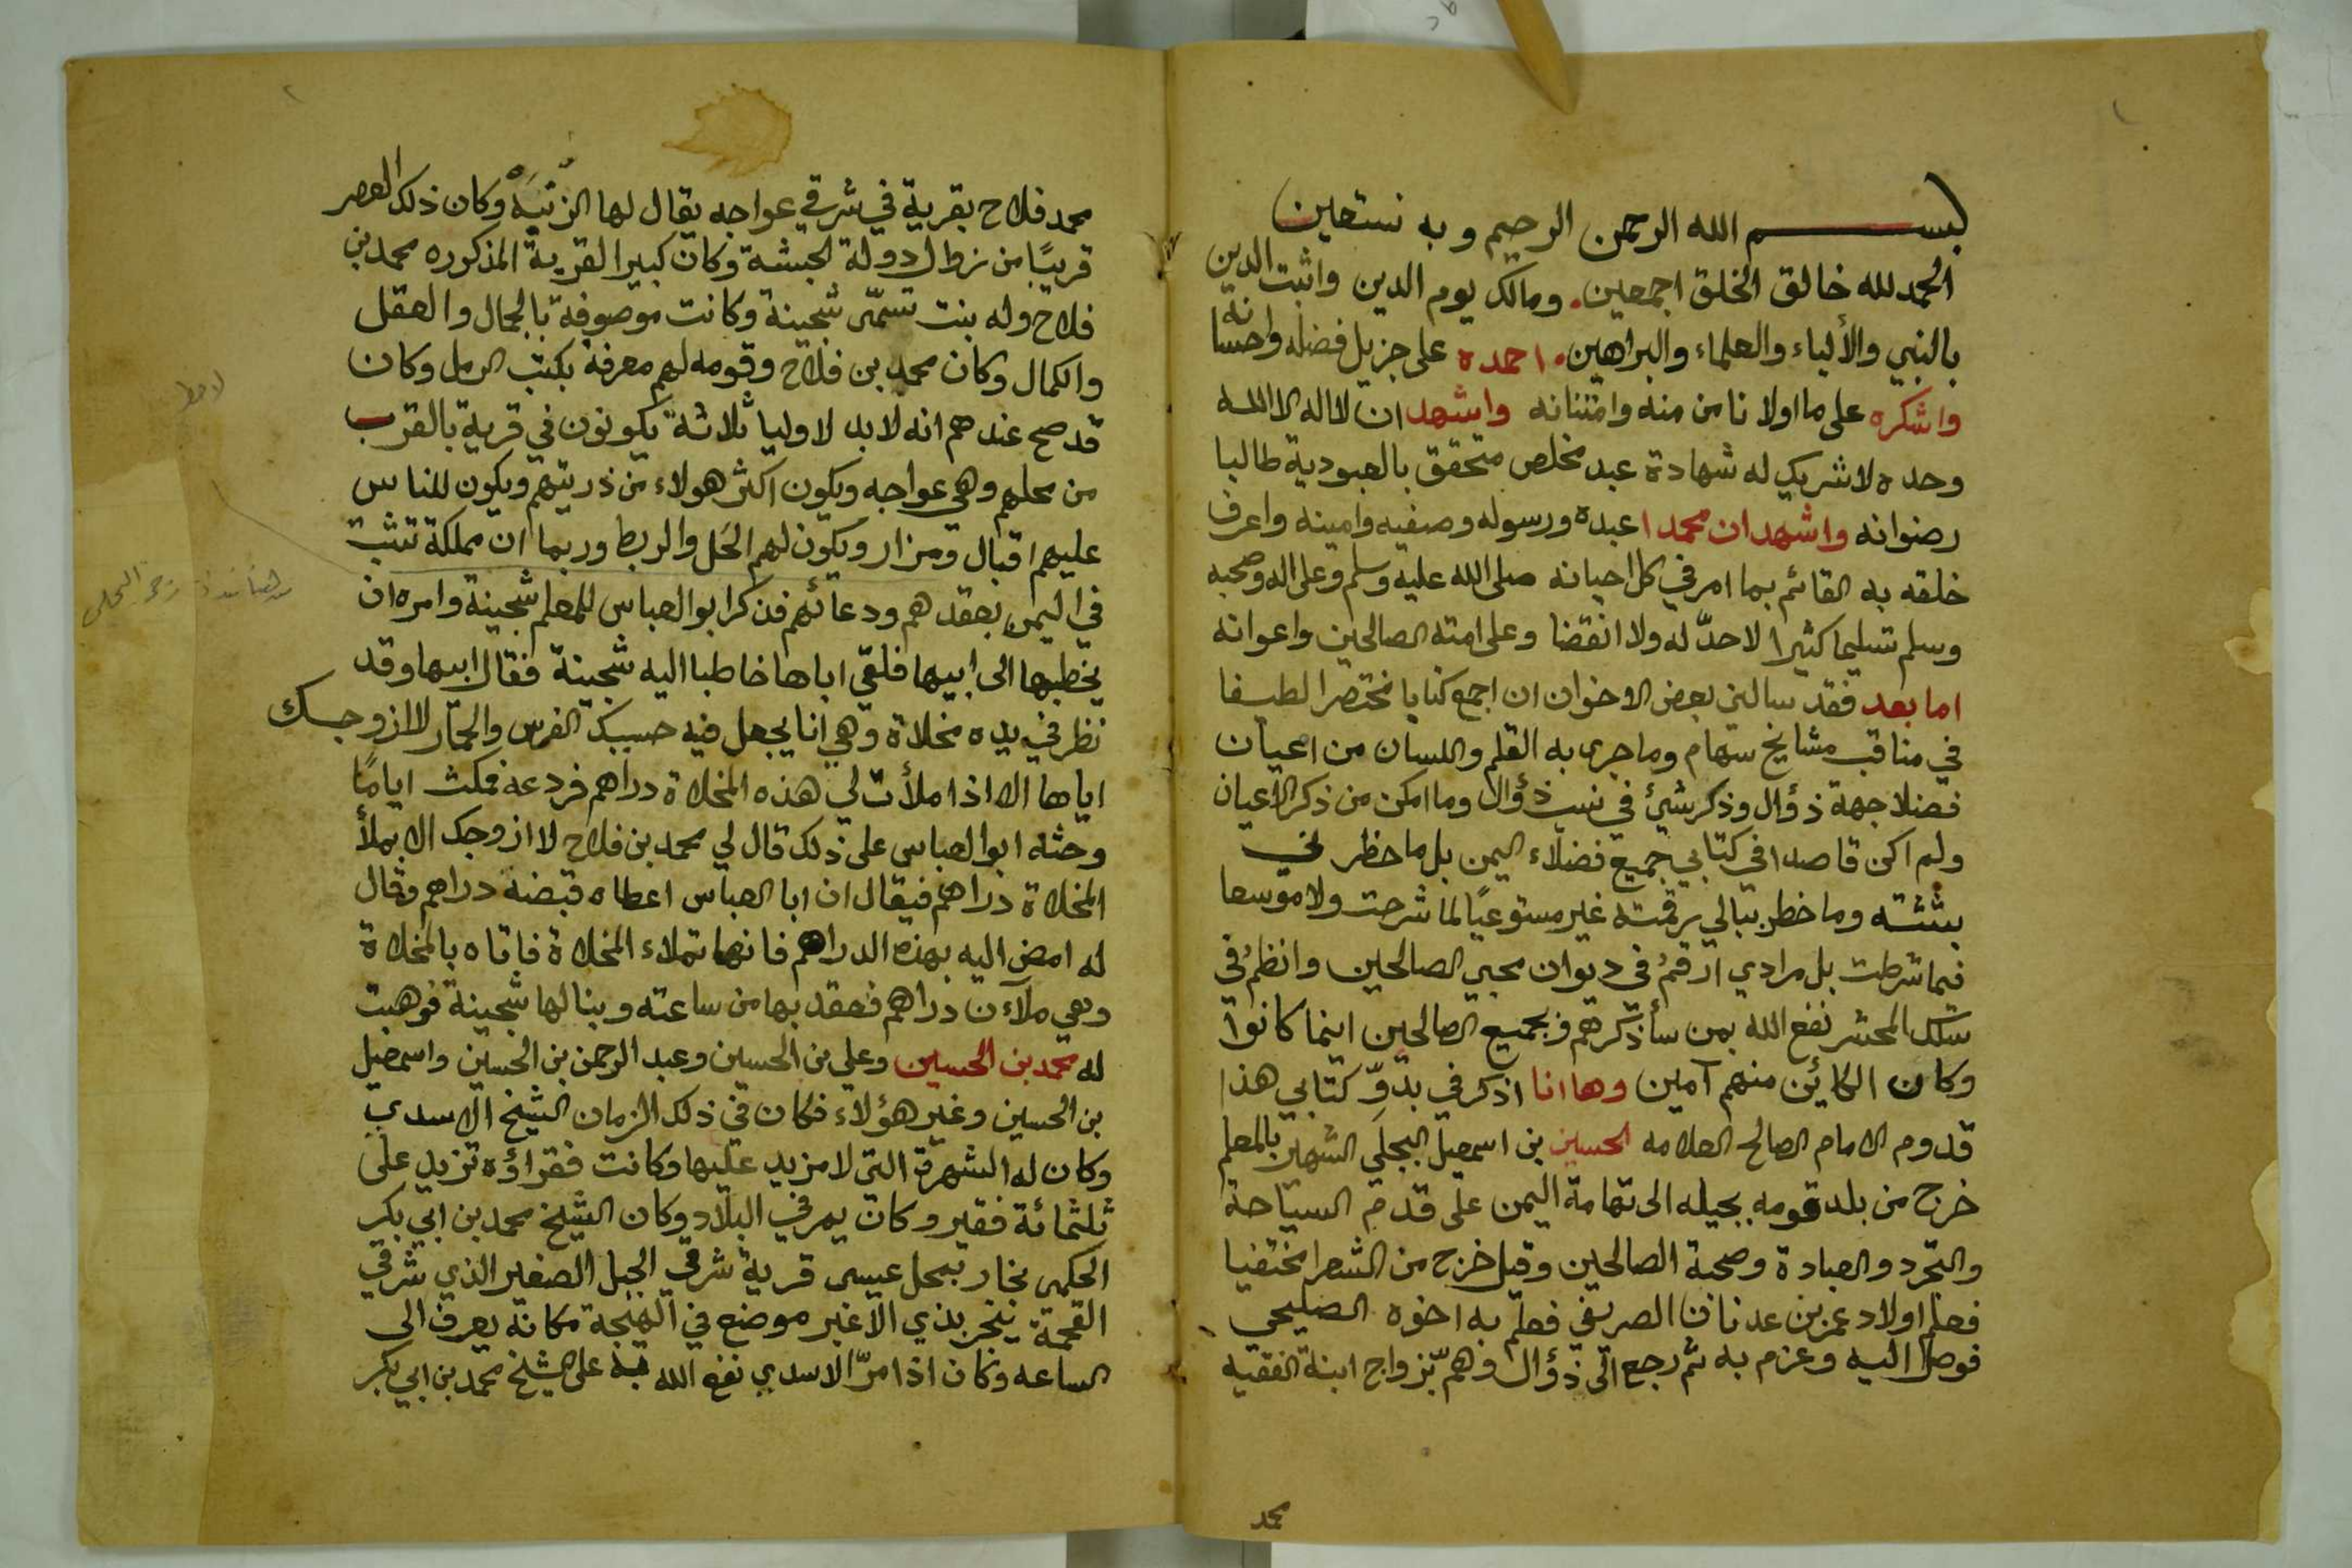 بسم الله الرحمن الرحيم وبه نستعين
الحمد لله خالق الخلق اجمعين. ومالك يوم الدين واثبت الدين
بالنبي والألياء والعلماء والبراهين. احمده على جزيل فضله واحسانه
واشكره على ما اولانا من منه وامتنانه واشهد ان لا اله الا الله
وحده لا شريك له شهادة عبد مخلص متحقق بالعبودية طالبا
رضوانه واشهد ان محمدا عبده ورسوله وصفيه وامينه واعرف
خلقه به القائم بما امر في كل احيانه صلى الله عليه وسلم وعلى اله وصحبه
وسلم تسليما كثيرا لا حدّ له ولا انقضا وعلى امته الصالحين واعوانه
اما بعد فقد سالني بعض الاخوان ان اجمع كتابا مختصرا لطيفا
في مناقب مشايخ سهام وما جرى به القلم واللسان من اعيان
فضلا جهة ذؤال وذكر شيئ في نسب ذؤال وما امكن من ذكر الاعيان
ولم اكن قاصدا في كتابي جميع فضلاء اليمن بل ما حظر لي
بثثته وما خطر ببالي رقمته غير مستوعبًا لما شرحت ولا موسعا
فيما شرطت بل مرادي ارقمُ في ديوان محبي الصالحين وانظمُ في
سلك المحشر نفع الله بمن سأذكرهم وبجميع الصالحين اينما كانوا
وكان الكائن منهم آمين وها انا اذكر في بدوّ كتابي هذا
قدوم الامام الصالح العلامه الحسين بن اسمعيل البجلي الشهير بالمعلم
خرج من بلد قومه بجيله الى تهامة اليمن على قدم السياحة
والتجرد والعبادة وصحبة الصالحين وقيل خرج من الشعرا مختفيا
فعلم اولاد عمر بن عدنان الصريفي فعلم به اخوه الصليحي
فوصل اليه وعزم به ثم رجع الى ذؤال وهمّ بزواج ابنة الفقيه
محمد
محمد فلاح بقرية في شرقي عواجه يقال لها وكان ذلك العصر
قريبًا من دولة الحبشة وكان كبير القرية المذكوره محمد بن
فلاح وله بنت تسمّى شجينة وكانت موصوفة بالجمال والعقل
والكمال وكان محمد بن فلاح وقومه لهم معرفة بكتب الرمل وكان
قد صح عندهم انه لا بد لاوليا ثلاثة يكونون في قرية بالقرب
من محلهم وهي عواجه ويكون اكثر هولاء من ذريتهم ويكون للناس
عليهم اقبال ومزار ويكون لهم الحَل والربط وربما ان مملكة تثبت
في اليمن بعقدهم ودعائهم فذكر ابو العباس للمعلم شجينة وامره ان
يخطبها الى ابيها فلقي اباها خاطبا اليه شجينة فقال ابيها وقد
نظر في يده مخلاة وهي انا يجعل فيه حسيك الفرس والحمّار لا ازوجك
اياها الا اذا ملأت لي هذه المخلاة دراهم فردعه فمكث ايامًا
وحثه ابو العباس على ذلك قال لي محمد بن فلاح لا ازوجك الا بملأ
المخلاة دراهم فيقال ان ابا العباس اعطاه قبضة دراهم وقال
له امض اليه بهذه الدراهم فانها تملاء المخلاة فاتاه بالمخلاة
وهي ملآءن دراهم فعقد بها من ساعته وبنا لها شجينة فوهبت
له محمد بن الحسين وعلي بن الحسين وعبد الرحمن بن الحسين واسمعيل
بن الحسين وغير هؤلاء فكان في ذلك الزمان الشيخ الاسدي
وكان له الشهرة التي لا مزيد عليها وكانت فقراؤه تزيد على
ثلثمائة فقير وكان يمر في البلاد وكان الشيخ محمد بن ابي بكر
الحكمي بمحل عيسى قرية شرقي الجبل الصغير الذي شرقي
القمحة بذي الاغبر موضع في مكانه يعرف الى
الساعه وكان اذا مرّ الاسدي نفع الله به على الشيخ محمد بن ابي بكر